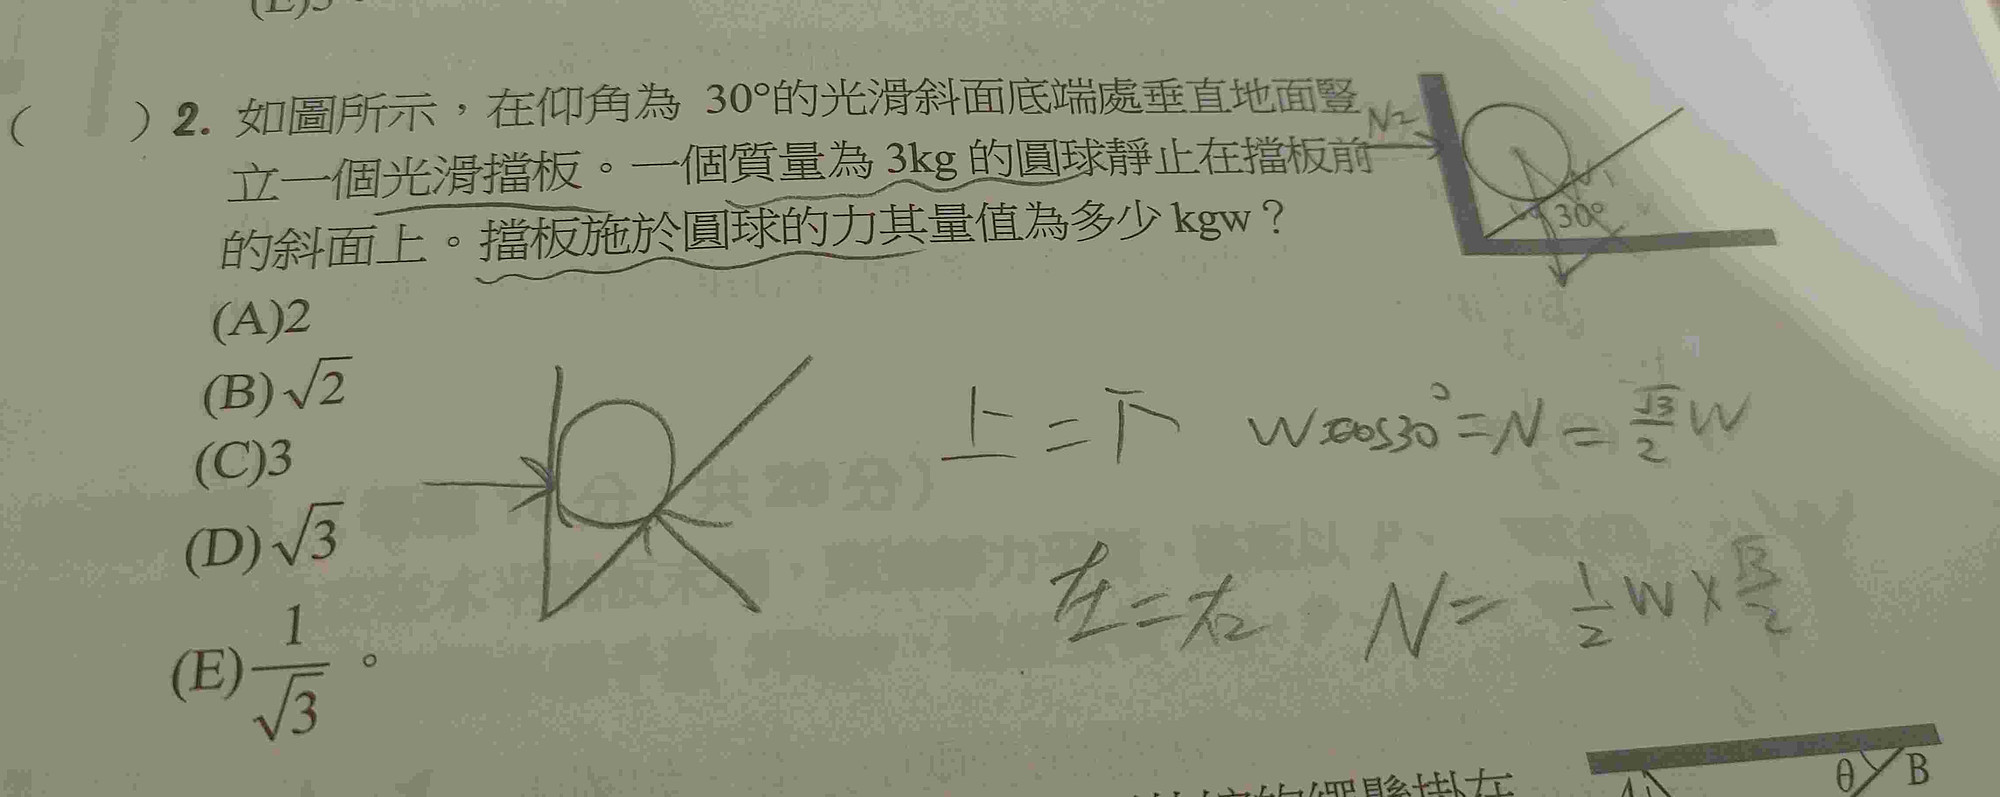 ( ) 2. 如圖所示，在仰角為 30°的光滑斜面底端處垂直地面豎
立一個光滑擋板。一個質量為 3kg 的圓球靜止在擋板前
的斜面上。擋板施於圓球的力其量值為多少 kgw？
N2
N1
30°
(A)2
(B)√2
(C)3
(D)√3
(E)1/√3。
上=下 Wcos30°=N=√3/2 W
左=右 N= 1/2 W×√3/2
θ B